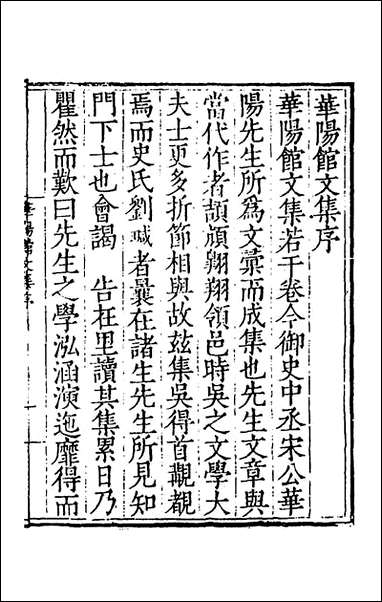 華陽館文集序
華陽館文集若干卷今御史中丞宋公華
陽先生所爲文彙而成集也先生文章與
當代作者頡頏翱翔領邑時吳之文學大
夫士更多折節相與故玆集吳得首觀覩
焉而史氏劉瑊者曩在諸生先生所見知
門下士也會謁 告在里讀其集累日乃
瞿然而歎曰先生之學泓涵演迤靡得而
華陽館文集序